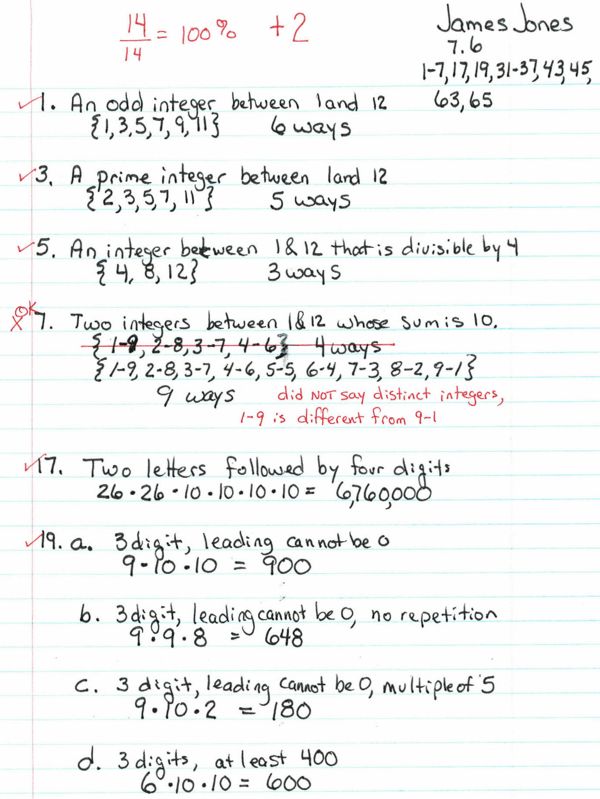 14/14 = 100% +2
James Jones
7.6
1-7, 17, 19, 31-37, 43, 45,
63, 65
✓1. An odd integer between 1 and 12
{1, 3, 5, 7, 9, 11} 6 ways
✓3. A prime integer between 1 and 12
{2, 3, 5, 7, 11} 5 ways
✓5. An integer between 1 & 12 that is divisible by 4
{4, 8, 12} 3 ways
OK
X 7. Two integers between 1 & 12 whose sum is 10.
{1-9, 2-8, 3-7, 4-6} 4 ways
{1-9, 2-8, 3-7, 4-6, 5-5, 6-4, 7-3, 8-2, 9-1}
9 ways did NOT say distinct integers,
1-9 is different from 9-1
✓17. Two letters followed by four digits
26 • 26 • 10 • 10 • 10 • 10 = 6,760,000
✓19. a. 3 digit, leading cannot be 0
9 • 10 • 10 = 900
b. 3 digit, leading cannot be 0, no repetition
9 • 9 • 8 = 648
c. 3 digit, leading cannot be 0, multiple of 5
9 • 10 • 2 = 180
d. 3 digits, at least 400
6 • 10 • 10 = 600